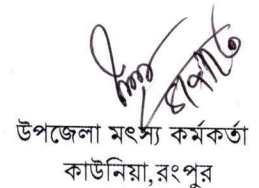 উপজেলা মৎস্য কর্মকর্তা
কাউনিয়া,রংপুর